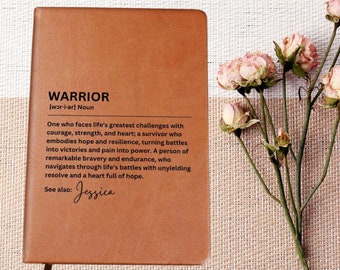 WARRIOR
[wɔr·i·ər] Noun
One who faces life's greatest challenges with
courage, strength, and heart; a survivor who
embodies hope and resilience, turning battles
into victories and pain into power. A person of
remarkable bravery and endurance, who
navigates through life's battles with unyielding
resolve and a heart full of hope.
See also: Jessica